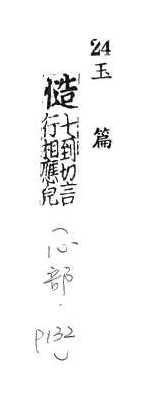 24
玉篇
慥
七到切言
行相應皃
(心部·
P132)